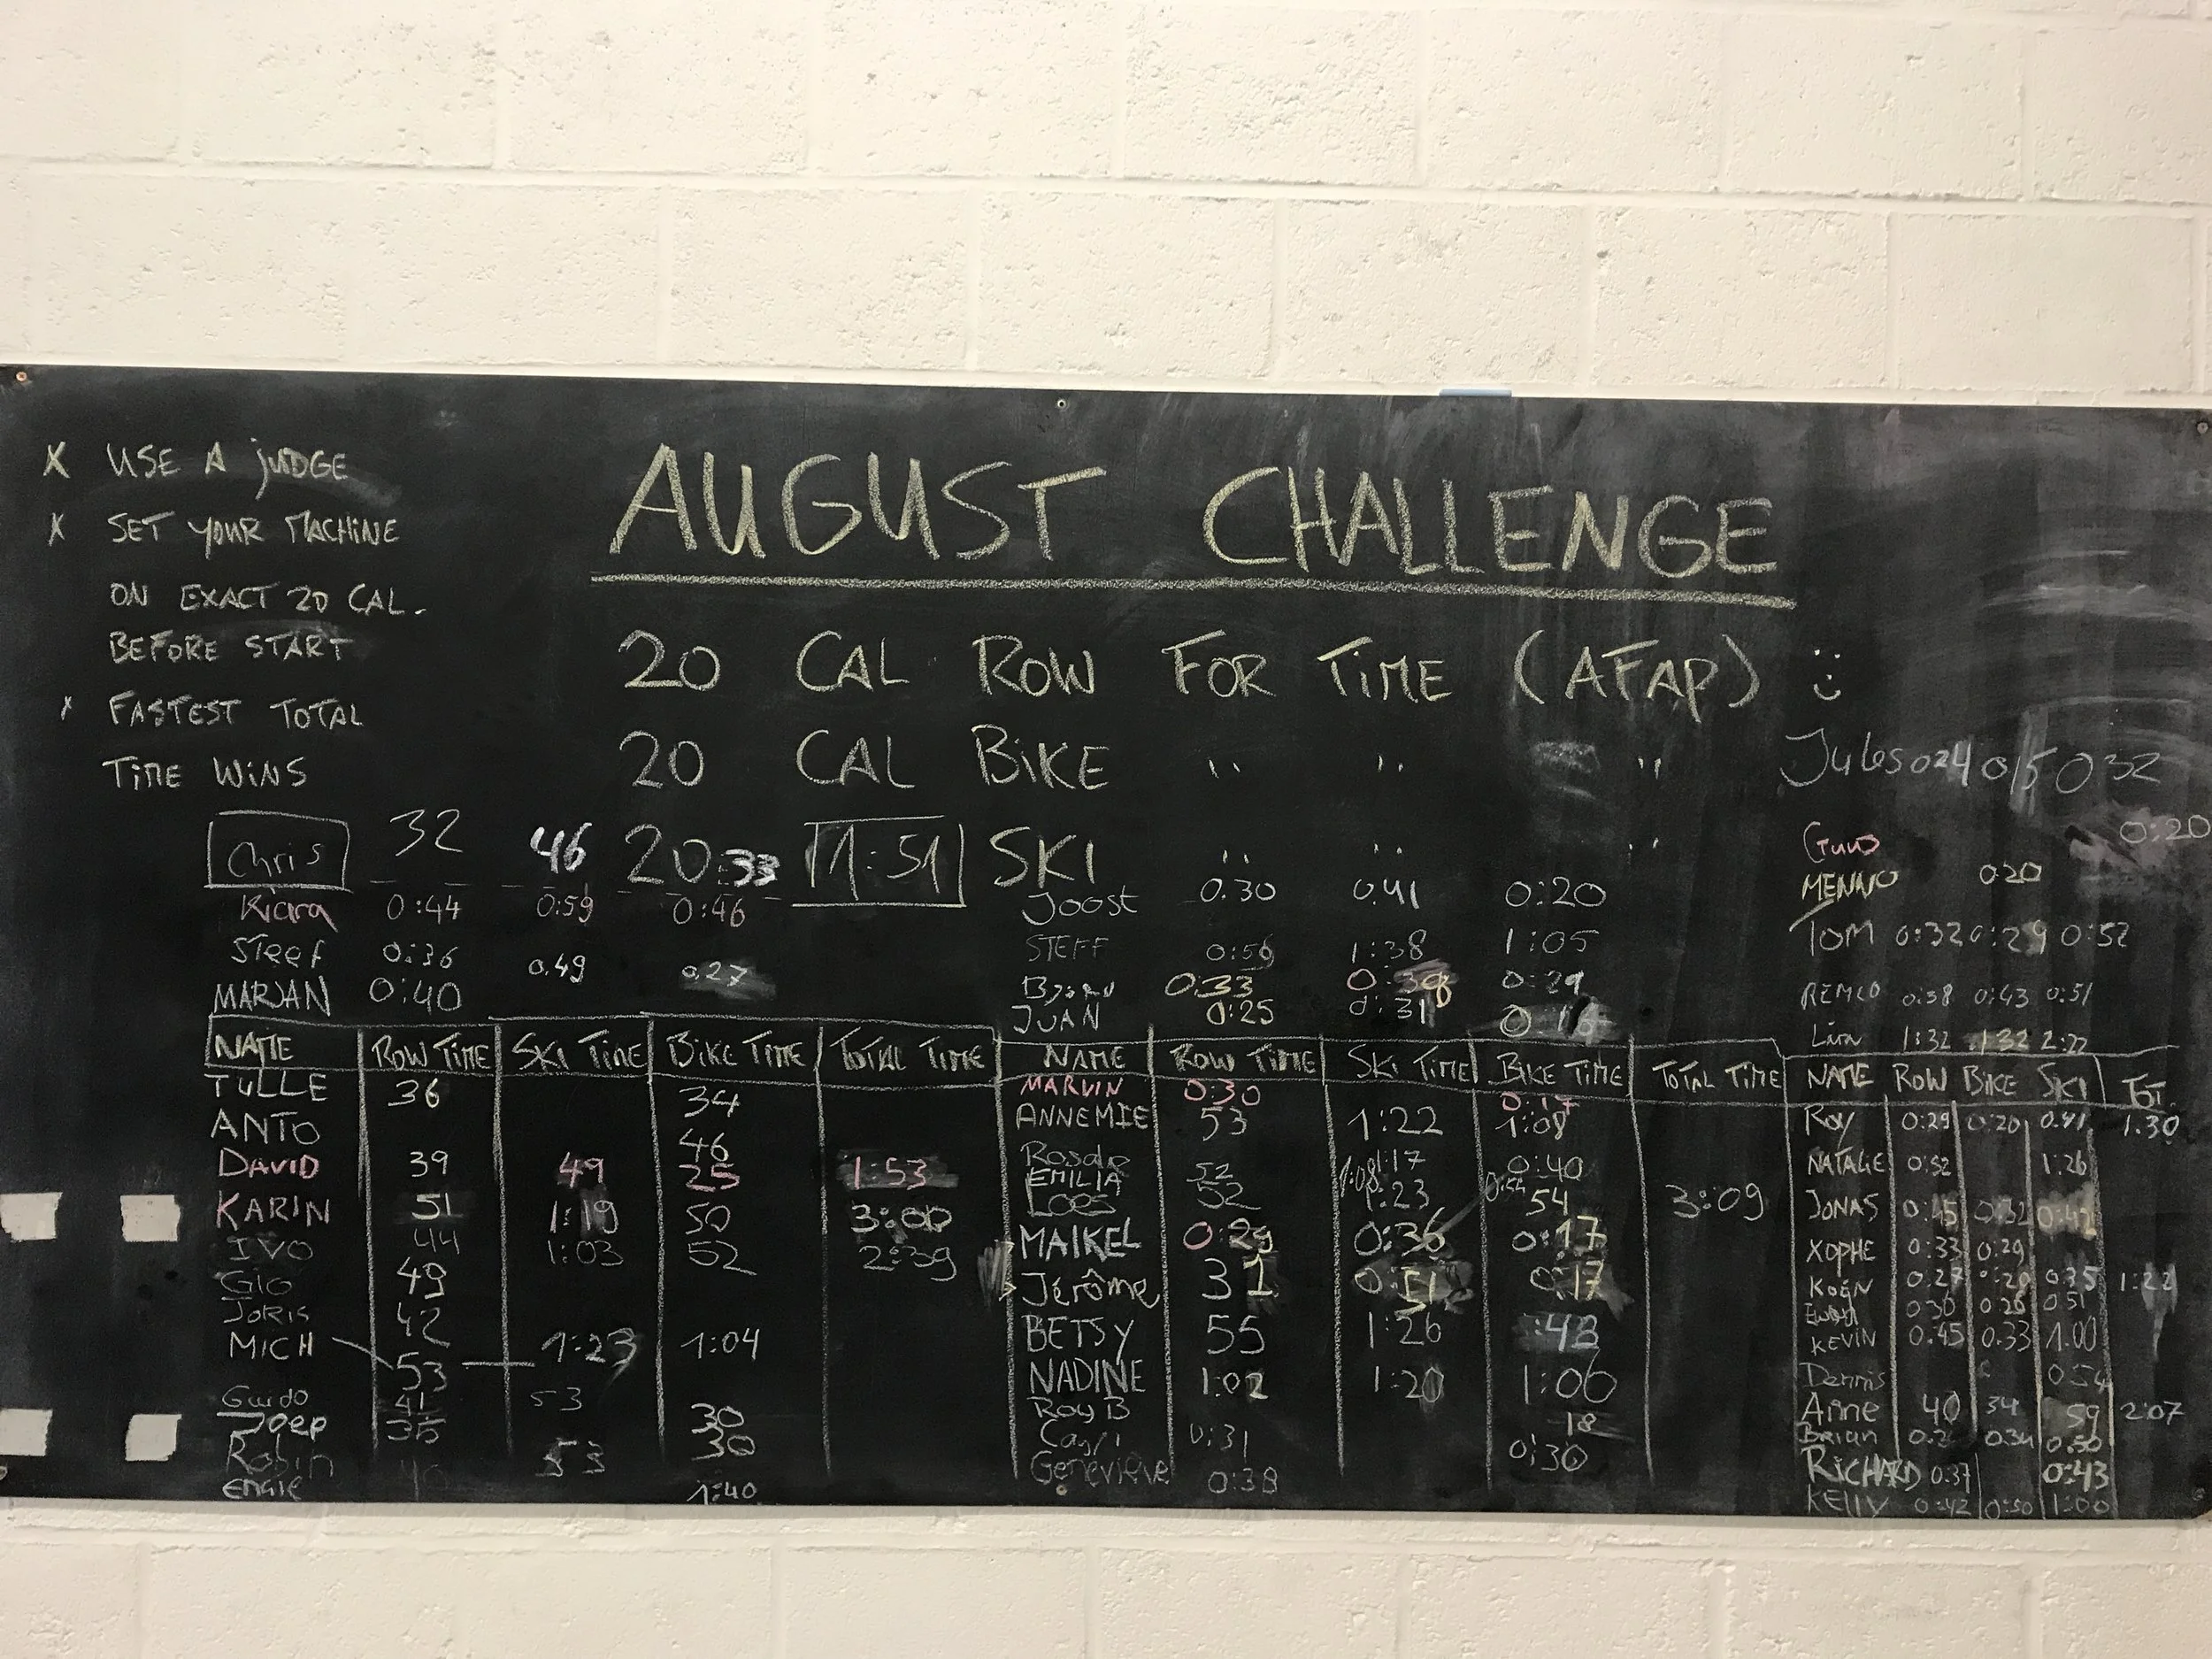 x USE A JUDGE
x SET YOUR MACHINE
ON EXACT 20 CAL.
BEFORE START
x FASTEST TOTAL
TIME WINS
AUGUST CHALLENGE
20 CAL ROW FOR TIME (AFAP) :)
20 CAL BIKE " " "
20 SKI " " "
Chris 32 46 :33 1:51
Kiara 0:44 0:59 0:46
Steef 0:36 0.49 0.27
MARJAN 0:40
NAME ROW TIME SKI TIME BIKE TIME TOTAL TIME
TULLE 36 34
ANTO 46
DAVID 39 49 25 1:53
KARIN 51 1:19 50 3:00
IVO 44 1:03 52 2:39
GIO 49
JORIS 42
MICH 53 1:23 1:04
Guido 41 53
Joep 35 30
Robin 53 30
1:40
Joost 0.30 0.41 0:20
STEFF 0:56 1:38 1:05
0:33
JUAN 0:25 0:31
NAME ROW TIME SKI TIME BIKE TIME TOTAL TIME
MARVIN 0:30 0:17
ANNEMIE 53 1:22 1:08
52 1:17 0:40
EMILIA 1:08
LOES 52 1:23 54 3:09
MAIKEL 0:29 0:36 0:17
Jérôme 31 0:17
BETSY 55 1:26 :43
NADINE 1:02 1:20 1:06
Roy B 18
0:31 0:30
Geneviève 0:38
Jules 024 015 032
Guus 0:20
MENNO 0:20
TOM 0:32 0:29 0:52
REMCO 0:38 0:43 0:51
1:32 1:32 2:22
NAME ROW BIKE SKI TOT.
Roy 0:29 0:20 0.41 1:30
NATALIE 0:52 1:26
JONAS 0:45 0:32 0:42
XOPHE 0:33 0:29
KOEN 0:27 0:20 0:35 1:22
0:36 0:26 0:51
KEVIN 0.45 0.33 1.00
Dennis 0:54
Anne 40 34 59 2:07
Brian 0.34 0.50
RICHARD 0:37 0:43
KELLY 0:42 0:50 1:00